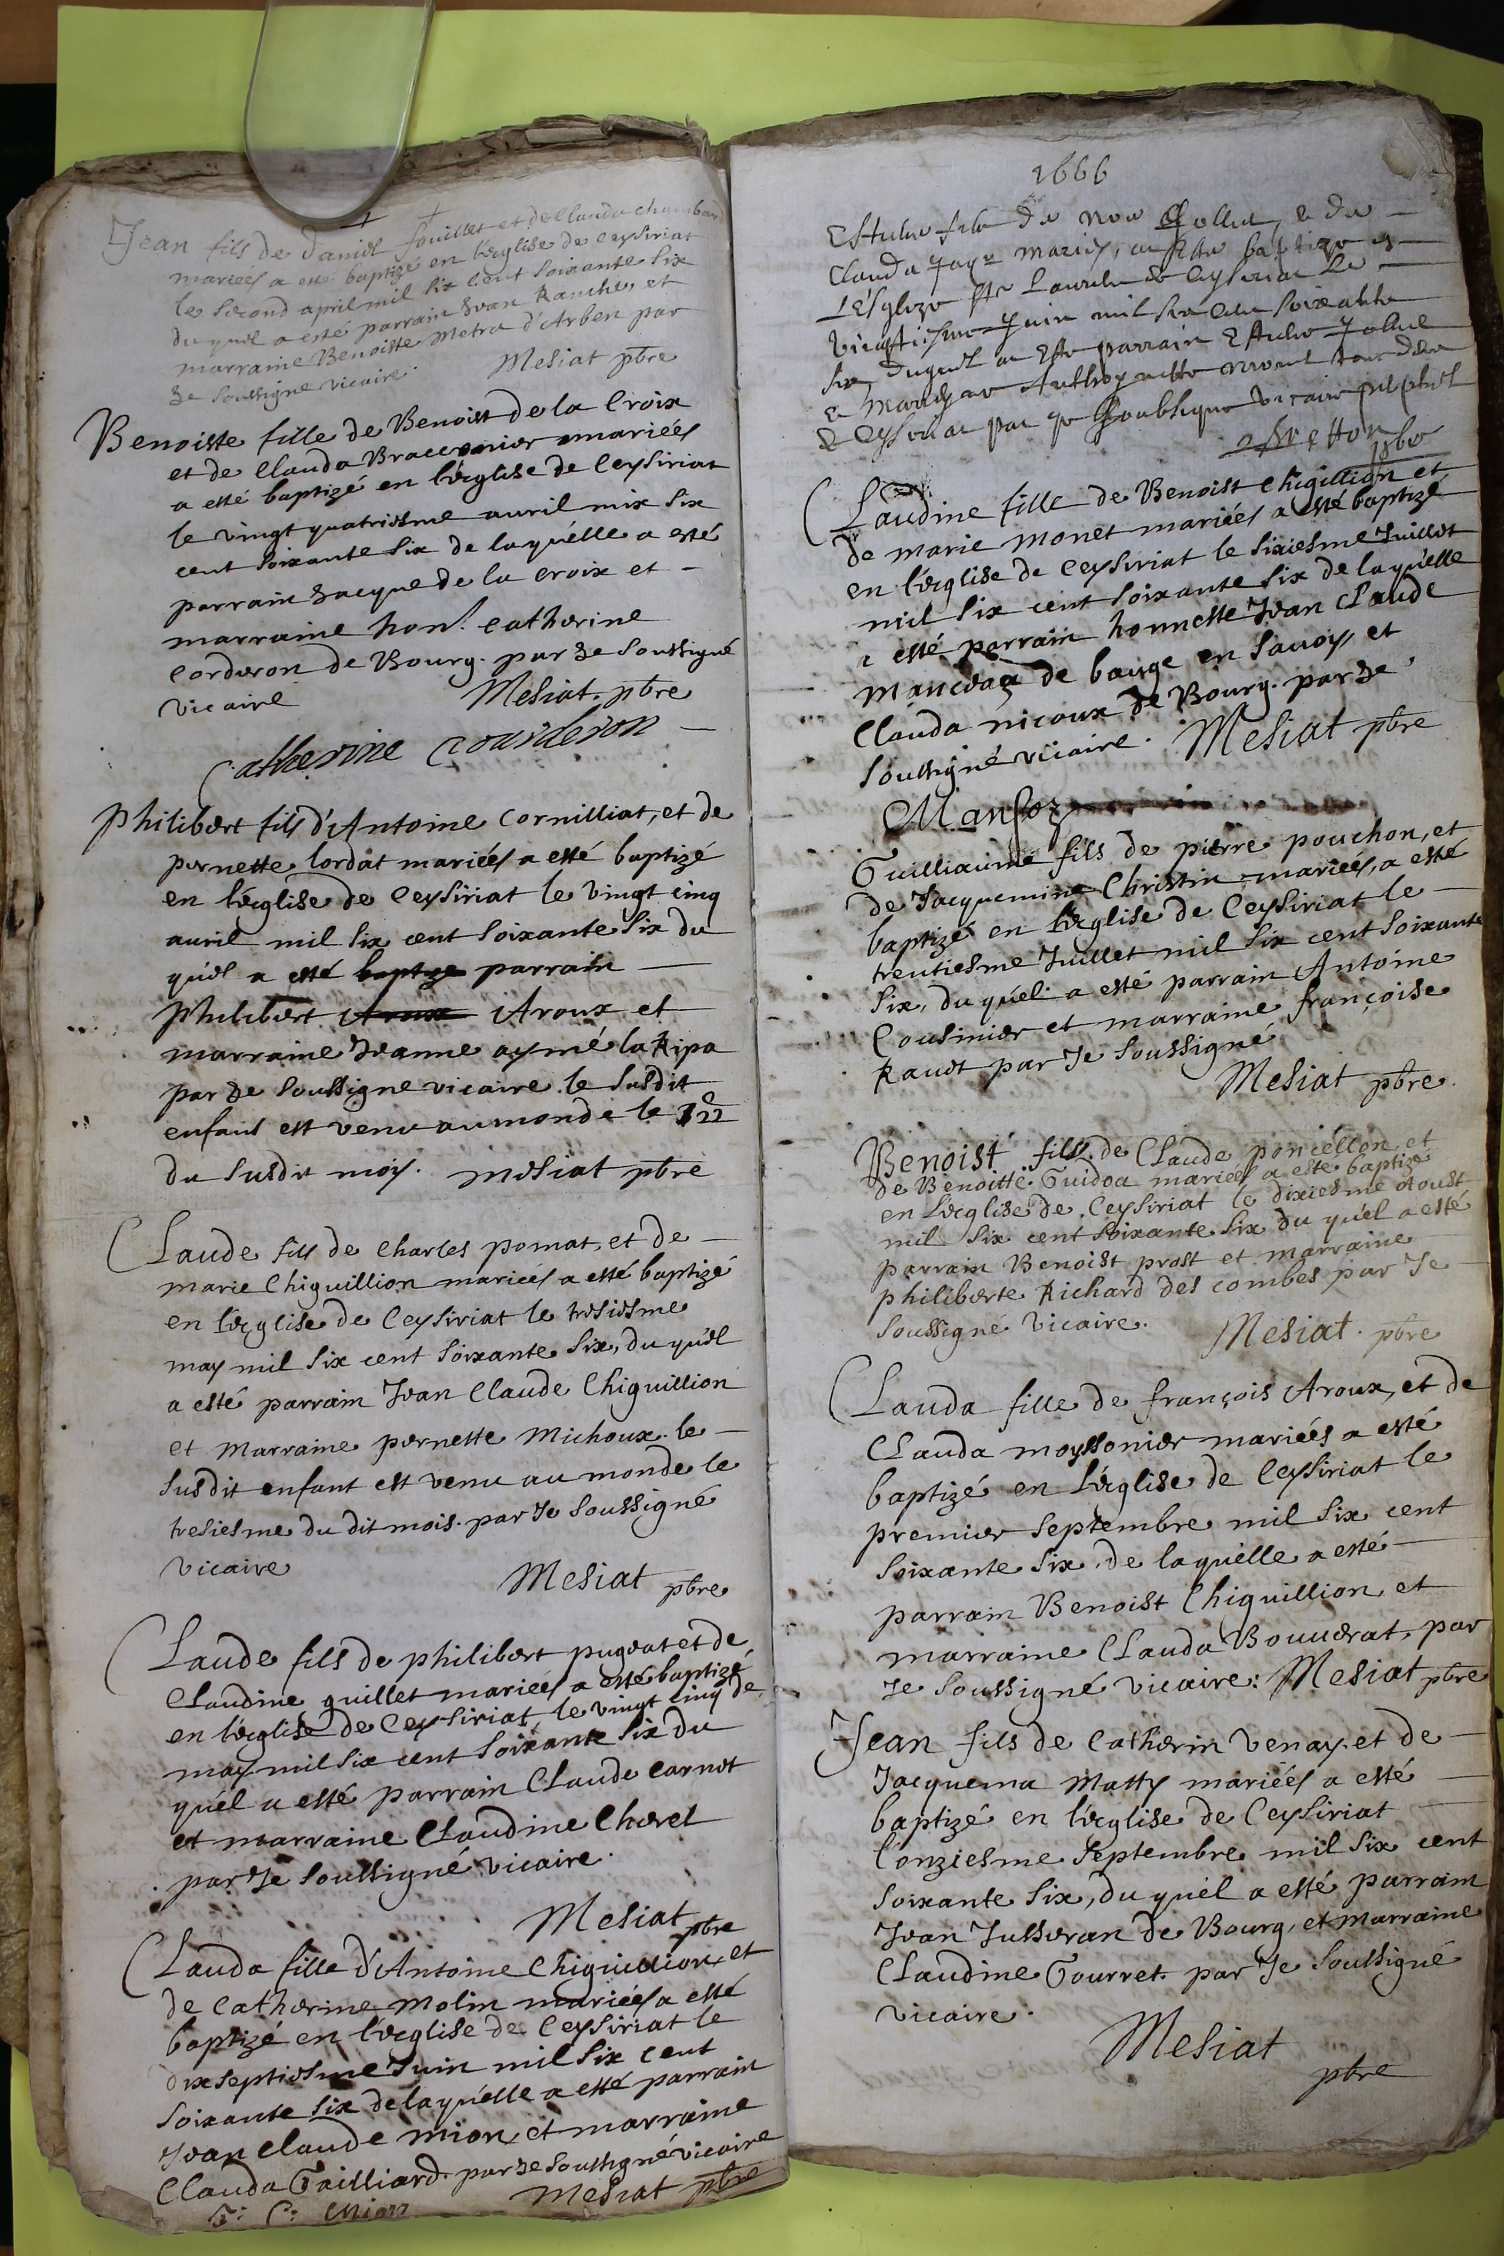 Jean fils de Daniel fouillet et de Clauda chambar
mariées a esté baptizé en l'église de Ceysiriat
le second april mil six cent soixante six
du quel a esté parrain Jean Ranches et
marraine Benoiste Metra d'Arben par
Je soussigné vicaire. Mesiat pbre
Benoiste fille de Benoist de la Croix
et de Clauda Bracemier mariées
a esté baptizé en l'église de Ceysiriat
le vingt quatriesme auril mix six
cent soixante six de laquélle a esté
parrain Jacque de la croix et -
marraine hon. Catherine
Corderon de Bourg. par Je soussigné
vicaire Mesiat. pbre
Catherine Courderon
Philibert fils d'Antoine Cornilliat, et de
pernette lordat mariées a esté baptizé
en l'église de Ceysiriat le vingt cinq
auril mil six cent soixante six du
quél a esté baptize parrain
Philibert Aroux Aroux et
marraine Jeanne aymé la Ripa
par Je soussigne vicaire. le susdit
enfant est venu au monde le 22
du susdit moys. mesiat pbre
Claude fils de Charles pomat, et de
marie Chiguillion mariées a esté baptizé
en l'église de Ceysiriat le tresiesme
may mil six cent soixante six, du quél
a esté parrain Jean Claude Chiguillion
et Marraine pernette Michoux. le
susdit enfant est venu au monde le
tresiesme du dit mois. par Je soussigné
vicaire Mesiat pbre
Claude fils de philibert pugeat et de
Claudine guillet mariées a esté baptizé
en l'église de Ceysiriat le vingt cinq de
may mil six cent soixante six du
quél a esté parrain Claude Carnet
et marraine Claudine Cheret
par Je soussigné vicaire.
Mesiat pbre
Clauda fille d'Antoine Chiguillion et
de Catherine Molin mariées a esté
baptizé en l'église de Ceysiriat le
dixseptiesme Juin mil six cent
soixante six de laquélle a esté parrain
Jean Claude Mion, et marraine
Clauda Gailliard. par Je soussigné vicaire
J: C: Mion Mesiat pbre
1666
de Noe & de
Clauda mariés, a esté baptize
L'esglize de Ceyseriat le
Juin mil six cens soixante
six, duquel a esté parrain
&
de Ceyseriat par Je vicaire
pbre
Claudine fille de Benoist Chigillion et
de marie monet mariées a esté baptizé
en l'église de Ceysiriat le sixiesme Juillet
mil six cent soixante six de laquélle
a esté parrain honneste Jean Claude
de bauge en Sauoy, et
Clauda nicoux de Bourg. par Je
soussigné vicaire. Mesiat pbre
Mansoz
Guilliaume fils de pierre pouchon, et
de Jacquemine Christin mariées, a esté
baptizé en l'église de Ceysiriat le
trentiesme Juillet mil six cent soixante
six, du quél a esté parrain Antoine
Cousinier et marraine françoise
Rauet par Je soussigné
Mesiat pbre.
Benoist fils de Claude poncellon et
de Benoitte Guidoa mariées a esté baptizé
en l'église de Ceysiriat le dixiesme Aoust
mil six cent soixante six du quél a esté
parrain Benoist prost et marraine
philiberte Richard des combes par Je
soussigné vicaire. Mesiat. pbre
Clauda fille de françois Aroux, et de
Clauda moyssonier mariées a esté
baptizé en l'église de Ceysiriat le
premier septembre mil six cent
soixante six, de laquélle a esté
parrain Benoist Chiguillion et
marraine Clauda Bouuerat, par
Je soussigné vicaire: Mesiat pbre
Jean fils de Catherin venay et de
Jacquema Matty mariées a esté
baptizé en l'église de Ceysiriat
l'onziesme septembre mil six cent
soixante six, du quél a esté parrain
Jean Jusseran de Bourg, et marraine
Claudine Gourret. par Je soussigné
vicaire.
Mesiat
pbre